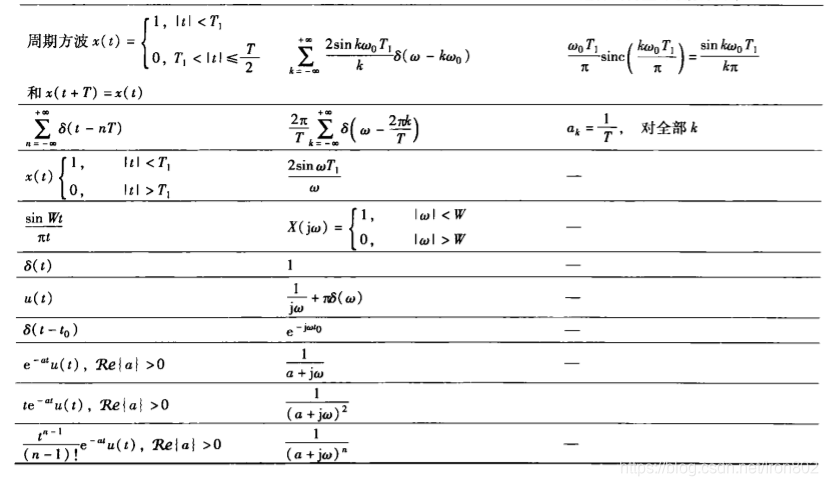 周期方波 x(t) = { 1, |t| < T₁
0, T₁ < |t| ≤ T/2
和 x(t+T) = x(t)
∑_{k=-∞}^{+∞} (2sin kω₀T₁)/k δ(ω - kω₀)
(ω₀T₁)/π sinc((kω₀T₁)/π) = (sin kω₀T₁)/(kπ)
∑_{n=-∞}^{+∞} δ(t - nT)
(2π)/T ∑_{k=-∞}^{+∞} δ(ω - (2πk)/T)
aₖ = 1/T, 对全部 k
x(t) { 1, |t| < T₁
0, |t| > T₁
(2sin ωT₁)/ω
—
(sin Wt)/(πt)
X(jω) = { 1, |ω| < W
0, |ω| > W
—
δ(t)
1
—
u(t)
1/(jω) + πδ(ω)
—
δ(t - t₀)
e^{-jωt₀}
—
e^{-at}u(t), Re{a} > 0
1/(a + jω)
—
te^{-at}u(t), Re{a} > 0
1/(a + jω)²
t^{n-1}/(n-1)! e^{-at}u(t), Re{a} > 0
1/(a + jω)ⁿ
—